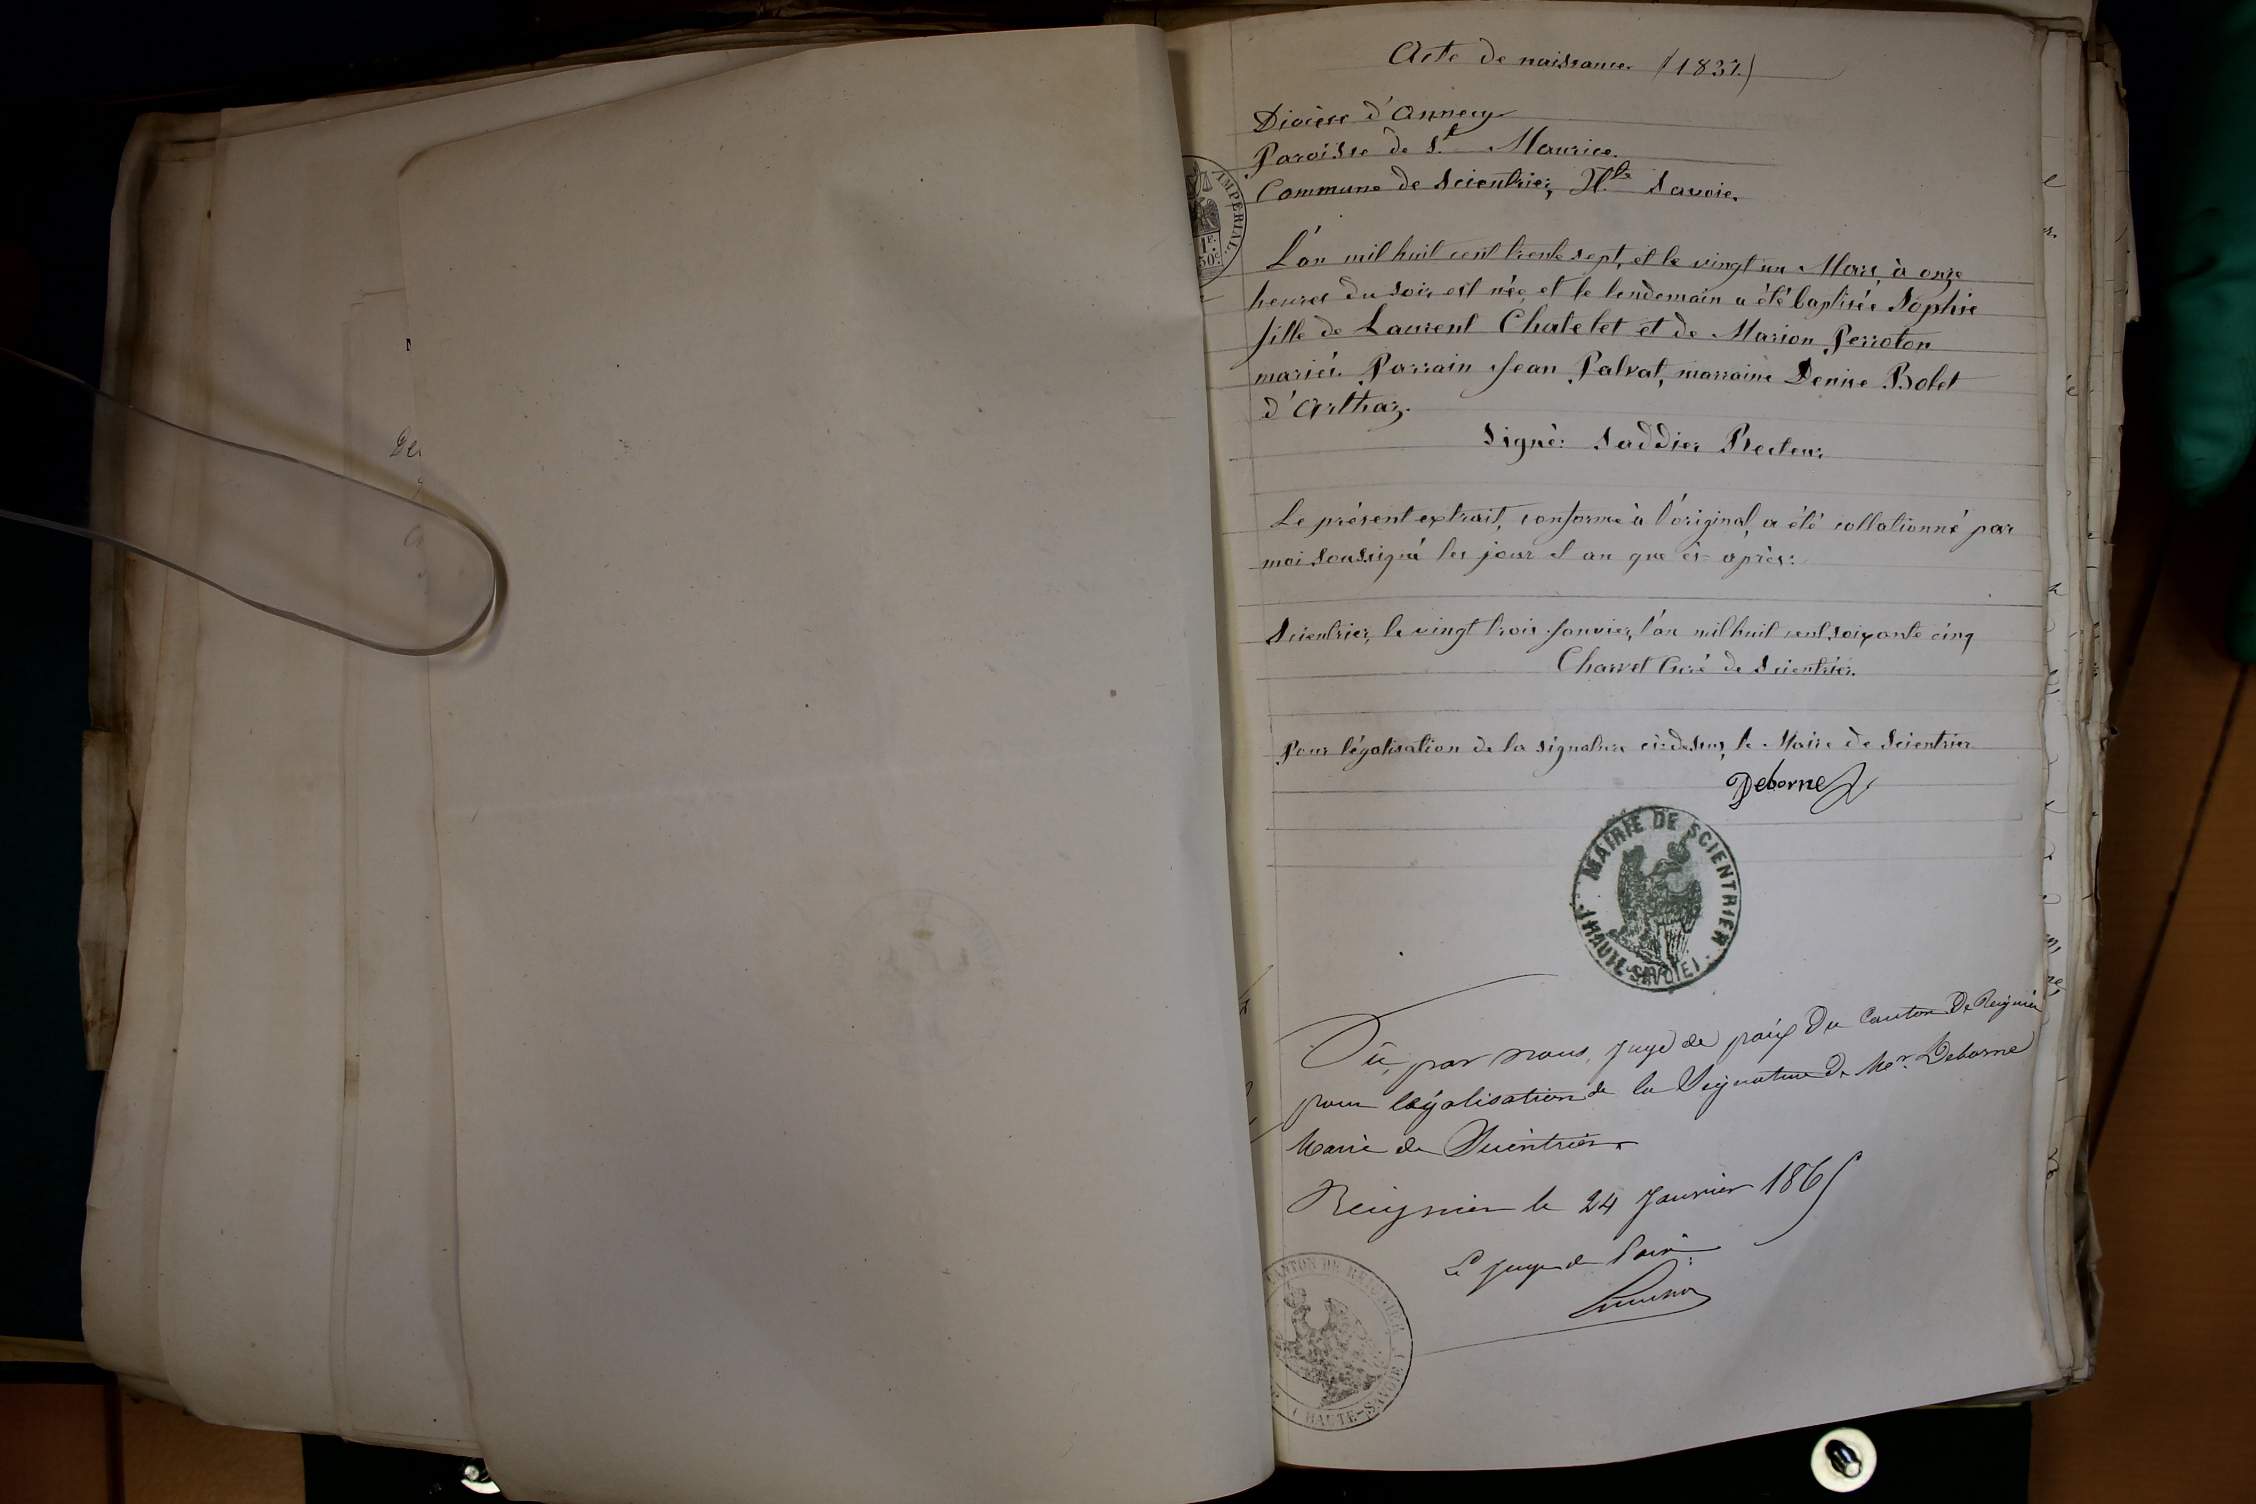 Acte de naissance (1837)
Diocèse d'Annecy
Paroisse de St Maurice.
Commune de Scientrier, Hte Savoie.
IMPERIAL.
1F.
50c.
L'an mil huit cent trente sept, et le vingt un Mars, à onze
heures du soir est née, et le lendemain a été baptisée Sophie
fille de Laurent Chatelet et de Marion Perroton
mariés. Parrain Jean Palvat, marraine Denise Botet
d'Arthaz.
Signé: Saddier Recteur
Le présent extrait, conforme à l'original, a été collationné par
moi soussigné les jour et an que ci-après:
Scientrier, le vingt trois Janvier, l'an mil huit cent soixante cinq
Charvet Curé de Scientrier.
Pour légalisation de la signature ci-dessus, le Maire de Scientrier
Deborne
MAIRIE DE SCIENTRIER
(HAUTE-SAVOIE)
Vu, par nous, Juge de paix du Canton de Reignier
pour légalisation de la Signature de Mr. Deborne
Maire de Scientrier.
Reignier le 24 Janvier 1865
Le Juge de Paix
CANTON DE REIGNIER
(HAUTE-SAVOIE